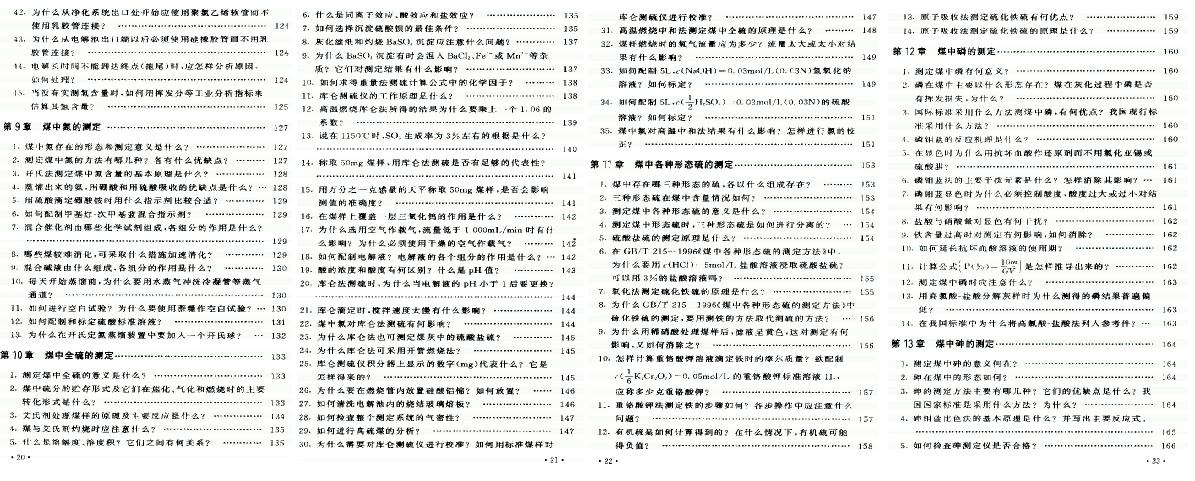 42. 为什么从净化系统出口处开始应使用聚氯乙烯软管而不
使用乳胶管连接? 124
43. 为什么从电解池出口端以后必须使用硅橡胶管而不用乳
胶管连接? 124
44. 电解长时间不能到达终点(拖尾)时,应怎样分析原因、
如何处理? 124
45. 当没有实测氢含量时,如何用挥发分等工业分析指标来
估算其氢含量? 125
第9章 煤中氮的测定 127
1. 煤中氮存在的形态和测定意义是什么? 127
2. 测定煤中氮的方法有哪几种?各有什么优缺点? 127
3. 开氏法测定煤中氮含量的基本原理是什么? 128
4. 蒸馏出来的氨,用硼酸和用硫酸吸收的优缺点是什么? 128
5. 用硫酸滴定硼酸铵时用什么指示剂比较合适? 129
6. 如何配制甲基红-次甲基蓝混合指示剂? 129
7. 混合催化剂由哪些化学试剂组成,各组分的作用是什么?
129
8. 哪些煤较难消化,可采取什么措施加速消化? 129
9. 混合碱液由什么组成,各组分的作用是什么? 130
10. 每天开始蒸馏前,为什么要用水蒸气冲洗冷凝管等蒸气
通道? 130
11. 如何进行空白试验?为什么要使用蔗糖作空白试验? 130
12. 如何配制和标定硫酸标准溶液? 131
13. 为什么在开氏定氮蒸馏装置中要加入一个开氏球? 132
第10章 煤中全硫的测定 133
1. 测定煤中全硫的意义是什么? 133
2. 煤中硫分的贮存形式及它们在焦化、气化和燃烧时的主要
转化形式是什么? 133
3. 艾氏剂处理煤样的原理及主要反应是什么? 134
4. 煤与艾氏剂灼烧时应注意什么? 135
5. 什么是溶解度、溶度积?它们之间有何关系? 135
· 20 ·
6. 什么是同离子效应、酸效应和盐效应? 135
7. 如何选择沉淀硫酸钡的最佳条件? 135
8. 灰化滤纸和灼烧 BaSO₄ 沉淀应注意什么问题? 137
9. 为什么 BaSO₄ 沉淀有时会混入 BaCl₂、Fe³⁺或 Mn²⁺等杂
质?它们对测定结果有什么影响? 137
10. 如何求得重量法测硫计算公式中的化学因子? 138
11. 库仑测硫仪的工作原理是什么? 138
12. 高温燃烧库仑法所得的结果为什么要乘上一个1.06的
系数? 139
13. 说在1150℃时,SO₃ 生成率为3%左右的根据是什么?
140
14. 称取50mg煤样,用库仑法测硫是否有足够的代表性?
141
15. 用万分之一感量的天平称取50mg煤样,是否会影响
测值的准确度? 141
16. 在煤样上覆盖一层三氧化钨的作用是什么? 142
17. 为什么选用空气作载气,流量低于1000mL/min时有什
么影响?为什么必须使用干燥的空气作载气? 142
18. 如何配制电解液?电解液的各个组分的作用是什么? 142
19. 酸的浓度和酸度有何区别?什么是pH值? 143
20. 库仑法测硫时,为什么当电解液的pH小于1后要更换?
144
21. 库仑滴定时,搅拌速度太慢有什么影响? 144
22. 煤中氯对库仑法测硫有何影响? 144
23. 为什么库仑法也可测定煤灰中的硫酸盐硫? 145
24. 为什么库仑法可采用开管燃烧法? 145
25. 库仑测硫仪积分器上显示的数字(mg)代表什么?它是
怎样得来的? 145
26. 为什么要在燃烧管内放置硅酸铝棉?如何放置? 146
27. 如何清洗电解池内的烧结玻璃熔板? 146
28. 如何检查整个测定系统的气密性? 147
29. 如何进行高硫煤的分析? 147
30. 为什么需要对库仑测硫仪进行校准?如何用标准煤样对
· 21 ·
库仑测硫仪进行校准? 147
31. 高温燃烧中和法测定煤中全硫的原理是什么? 148
32. 煤样燃烧时的氧气流量应为多少?流量太大或太小对结
果有什么影响? 149
33. 如何配制5L,c(NaOH)=0.03mol/L(0.03N)氢氧化钠
溶液?如何标定? 149
34. 如何配制5L,c(½H₂SO₄)=0.03mol/L(0.03N)的硫酸
溶液?如何标定? 151
35. 煤中氯对高温中和法结果有什么影响?怎样进行氯的校
正? 151
第11章 煤中各种形态硫的测定 153
1. 煤中存在哪三种形态的硫,各以什么组成存在? 153
2. 三种形态硫在煤中含量情况如何? 153
3. 测定煤中各种形态硫的意义是什么? 154
4. 测定煤中形态硫时,三种形态硫是如何进行分离的? 154
5. 硫酸盐硫的测定原理是什么? 154
6. 在GB/T 215—1996《煤中各种形态硫的测定方法》中,
为什么要用c(HCl)=5mol/L盐酸溶液浸取硫酸盐硫?
可以用3%的盐酸溶液吗? 154
7. 氧化法测定硫化铁硫的原理是什么? 155
8. 为什么GB/T 215—1996《煤中各种形态硫的测定方法》中
硫化铁硫的测定,要用测铁的方法取代测硫的方法? 156
9. 为什么用稀硝酸处理煤样后,滤液呈黄色,这对测定有何
影响,又如何排除之? 156
10. 怎样计算重铬酸钾溶液滴定铁时的摩尔质量?欲配制
c(⅙K₂Cr₂O₇)=0.05mol/L的重铬酸钾标准溶液1L,
应称多少克重铬酸钾? 157
11. 重铬酸钾法测定铁的步骤如何?各步操作中应注意什么
问题? 157
12. 有机硫是如何计算得到的?在什么情况下,有机硫可能
得负值? 158
· 22 ·
13. 原子吸收法测定硫化铁硫有何优点? 159
14. 原子吸收法测定硫化铁硫的原理是什么? 159
第12章 煤中磷的测定 160
1. 测定煤中磷有何意义? 160
2. 磷在煤中主要以什么形态存在?煤在灰化过程中磷是否
有挥发损失,为什么? 160
3. 国际标准采用什么方法测煤中磷,有何优点?我国现行标
准采用什么方法? 160
4. 磷钼蓝的反应机理是什么? 160
5. 在显色时为什么用抗坏血酸作还原剂而不用氯化亚锡或
硫酸肼? 161
6. 磷钼蓝法的主要干扰元素是什么?怎样消除其影响? 161
7. 磷钼蓝显色时为什么必须控制酸度,酸度过大或过小对结
果有何影响? 161
8. 盐酸与硝酸量对显色有何干扰? 162
9. 铁含量过高时对测定有何影响,如何消除? 162
10. 如何延长抗坏血酸溶液的使用期? 162
11. 计算公式[P(%)=10m/GV]是怎样推导出来的? 162
12. 测定煤中磷时应注意什么? 163
13. 用高氯酸-盐酸分解灰样时为什么测得的磷结果普遍偏
低? 163
14. 在我国标准中为什么将高氯酸-盐酸法列入参考件? 163
第13章 煤中砷的测定 164
1. 测定煤中砷的意义何在? 164
2. 砷在煤中的形态如何? 164
3. 砷的测定方法主要有哪几种?它们的优缺点是什么?我
国国家标准是采用什么方法?为什么? 164
4. 砷钼蓝比色法的基本原理是什么?并写出主要反应式。
165
5. 如何检查砷测定仪是否合格? 166
· 23 ·